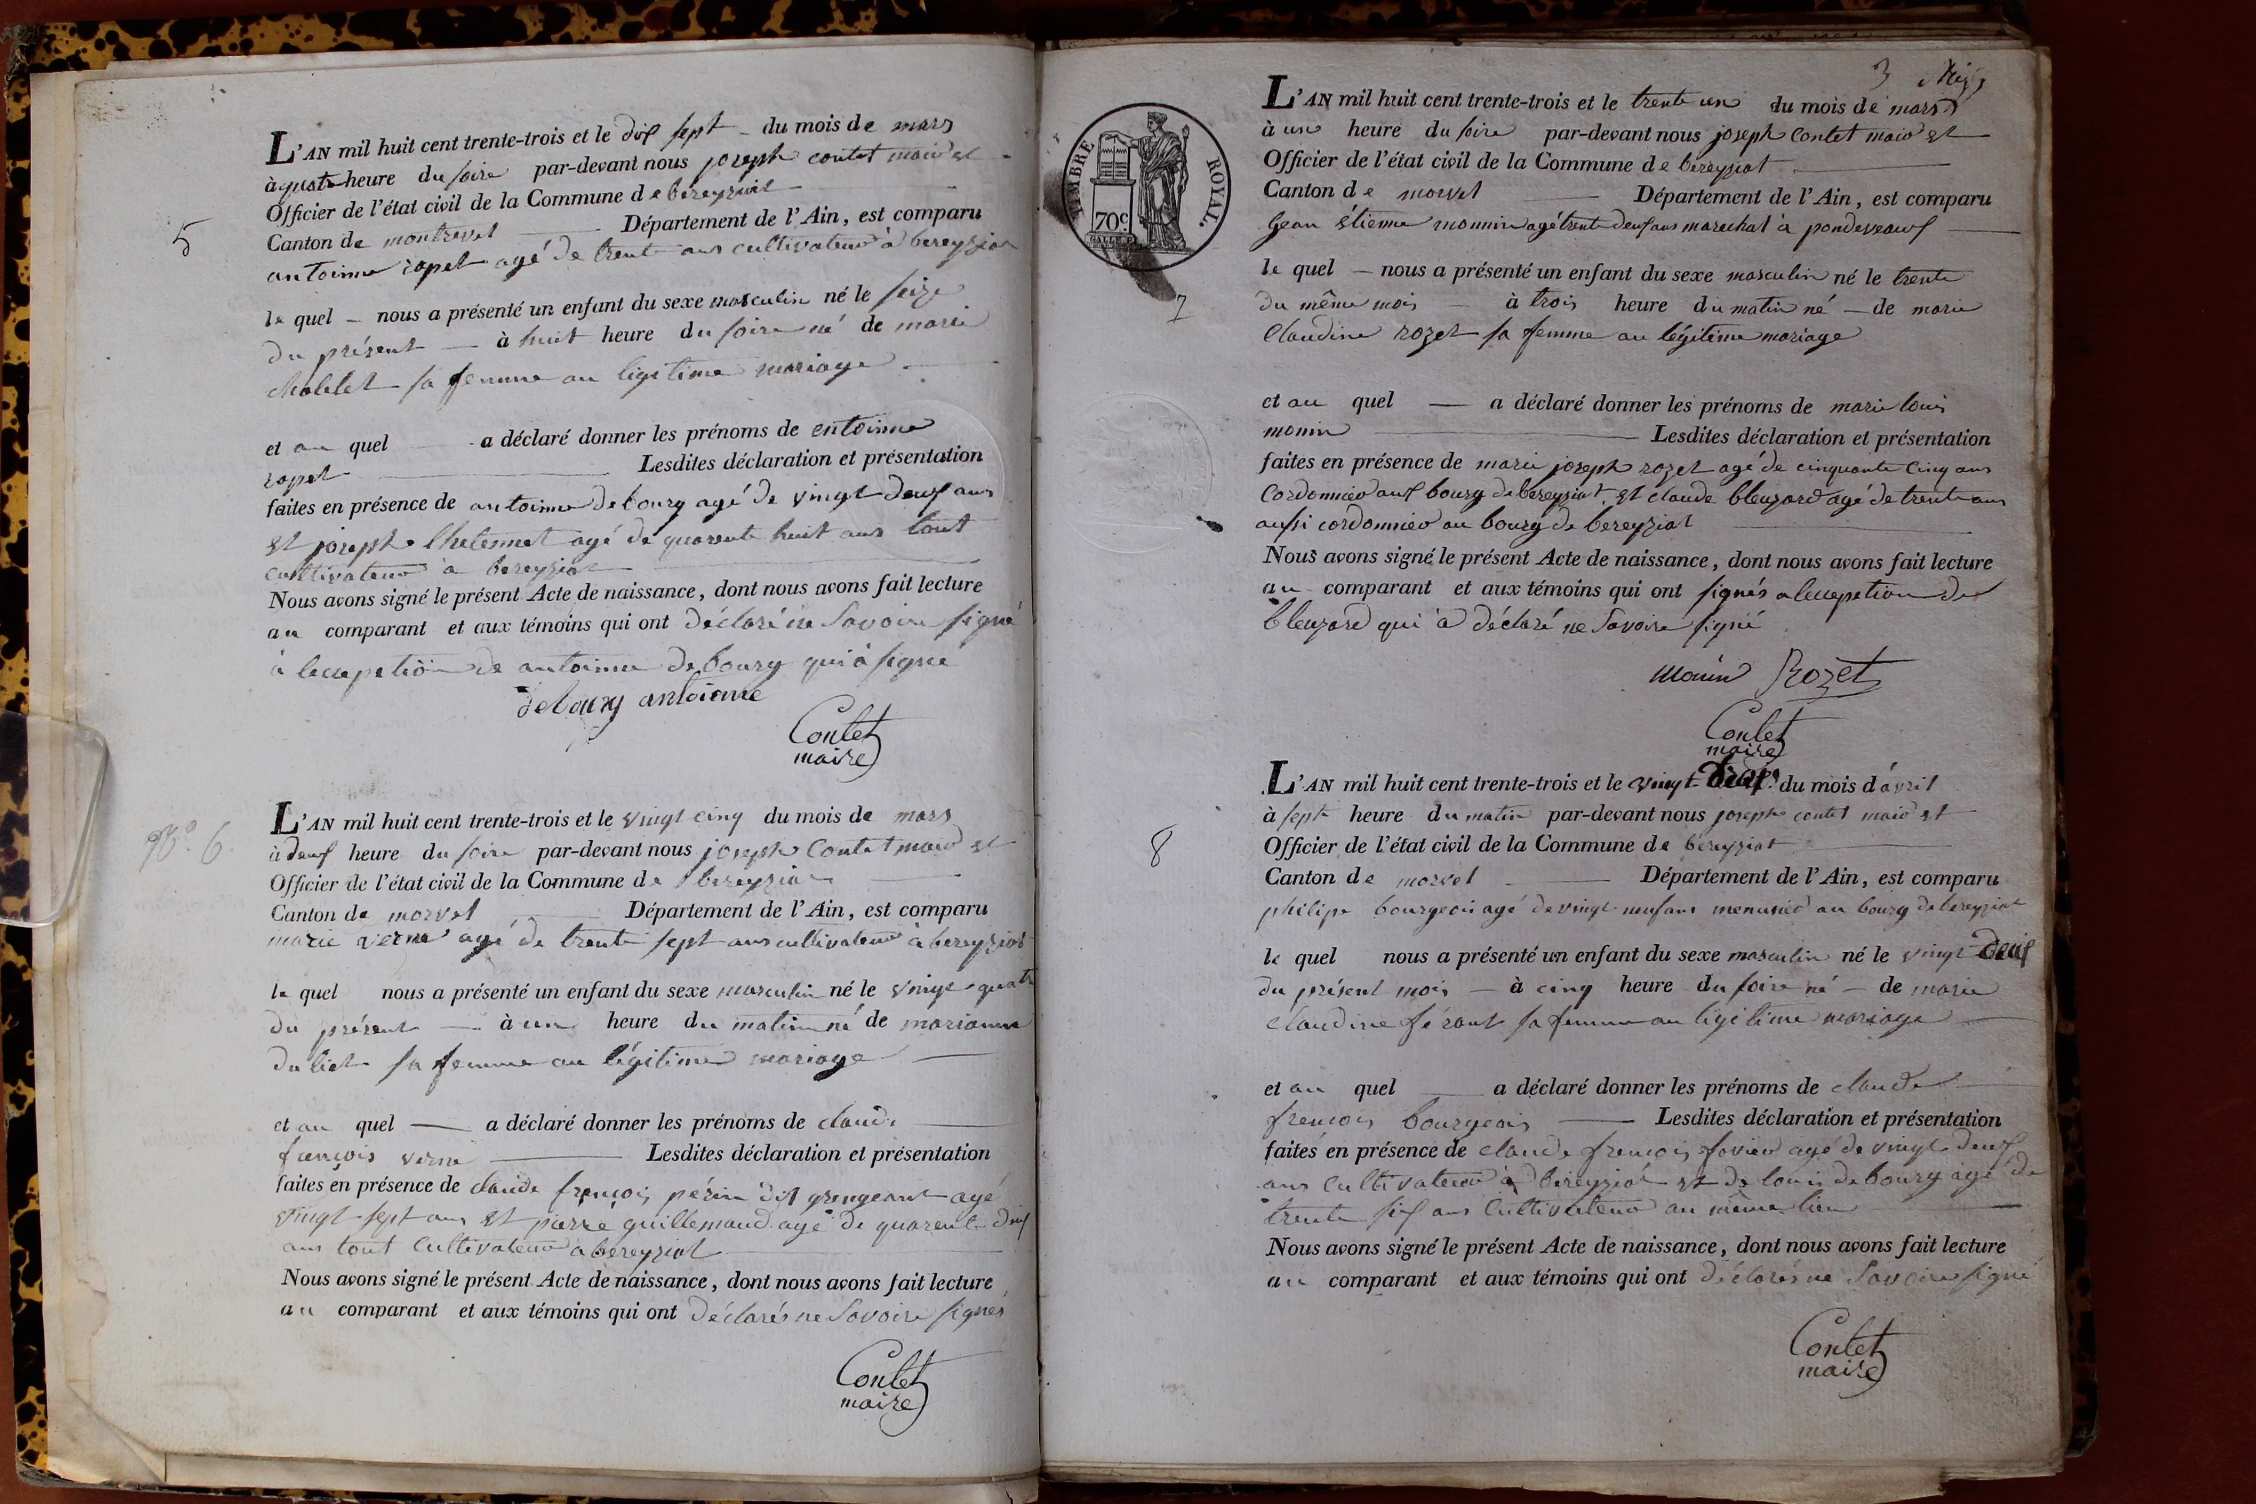 5
L'AN mil huit cent trente-trois et le dix sept du mois de mars
à quatre heure du soire par-devant nous joseph contet maire et
Officier de l'état civil de la Commune de bereyziat
Canton de montrevel Département de l'Ain, est comparu
antoinne ropet agé de trente ans cultivateur à bereyziat
le quel nous a présenté un enfant du sexe masculin né le seize
du présent à huit heure du soire né de marie
sa femme au ligitime mariage
et au quel a déclaré donner les prénoms de entoinne
ropet Lesdites déclaration et présentation
faites en présence de antoinne debourg agé de vingt deux ans
et joseph agé de quarente huit ans tout
cultivateur a bereyziat
Nous avons signé le présent Acte de naissance, dont nous avons fait lecture
au comparant et aux témoins qui ont déclaré ne Savoire signé
à lecxepetion de antoinne debourg qui à signé
debourg antoinne
Contet
maire
No. 6.
L'AN mil huit cent trente-trois et le vingt cinq du mois de mars
à deux heure du soire par-devant nous joseph Contet maire et
Officier de l'état civil de la Commune de bereyziat
Canton de morvel Département de l'Ain, est comparu
marie verne agé de trente sept ans cultivateur à bereyziat
le quel nous a présenté un enfant du sexe masculin né le vingt quatre
du présent à une heure du matin né de marianne
dubiet sa femme au légitime mariage
et au quel a déclaré donner les prénoms de claude
françois verne Lesdites déclaration et présentation
faites en présence de claude françois périn dit grengeant agé
vingt sept ans et pierre guillemaud agé de quarente deux
ans tout Cultivateur a bereyziat
Nous avons signé le présent Acte de naissance, dont nous avons fait lecture
au comparant et aux témoins qui ont déclarés ne Savoire signés
Contet
maire
3
TIMBRE ROYAL.
70c
7
L'AN mil huit cent trente-trois et le trente un du mois de mars
à une heure du soire par-devant nous joseph Contet maire et
Officier de l'état civil de la Commune de bereyziat
Canton de morvel Département de l'Ain, est comparu
jean étienne monnin agé trente deux ans marechal à pondeveaux
le quel nous a présenté un enfant du sexe masculin né le trente
du même mois à trois heure du matin né de marie
Claudine rozet sa femme au légitime mariage
et au quel a déclaré donner les prénoms de marie louis
monin Lesdites déclaration et présentation
faites en présence de marie joseph rozet agé de cinquante cinq ans
Cordonnier aux bourg de bereyziat et claude bleuzard agé de trente ans
aussi cordonnier au bourg de bereyziat
Nous avons signé le présent Acte de naissance, dont nous avons fait lecture
au comparant et aux témoins qui ont signés a lecxepetion de
bleuzard qui à déclaré ne Savoire signé
Monin Rozet
Contet
maire
8
L'AN mil huit cent trente-trois et le vingt du mois d'avril
à sept heure du matin par-devant nous joseph contet maire et
Officier de l'état civil de la Commune de bereyziat
Canton de morvel Département de l'Ain, est comparu
philipe bourgeois agé de vingt neuf ans menusier au bourg de bereyziat
le quel nous a présenté un enfant du sexe masculin né le vingt deux
du présent mois à cinq heure du soire né de marie
claudine féraut sa femme au ligitime mariage
et au quel a déclaré donner les prénoms de claude
frençois bourgeois Lesdites déclaration et présentation
faites en présence de claude frençois agé de vingt deux
ans Cultivateur à bereyziat et de louis debourg agé de
trente six ans Cultivateur au même lieu
Nous avons signé le présent Acte de naissance, dont nous avons fait lecture
au comparant et aux témoins qui ont déclarés ne Savoire signé
Contet
maire